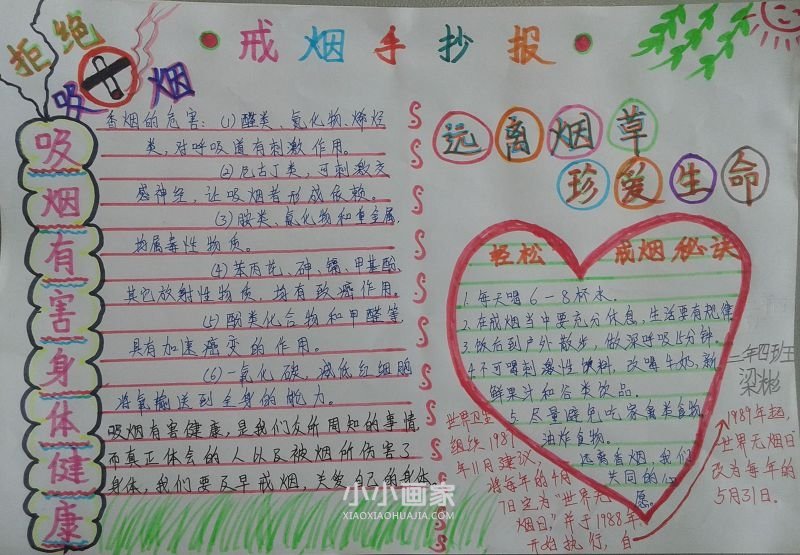 拒绝
吸烟
戒烟手抄报
吸烟有害身体健康
香烟的危害:(1)醛类、氮化物、烯烃
类,对呼吸道有刺激作用。
(2)尼古丁类,可刺激交
感神经,让吸烟者形成依赖。
(3)胺类、氰化物和重金属,
均属毒性物质。
(4)苯丙芘、砷、镉、甲基酚、
其它放射性物质,均有致癌作用。
(5)酚类化合物和甲醛等,
具有加速癌变的作用。
(6)一氧化碳,减低红细胞
将氧输送到全身的能力。
吸烟有害健康,是我们众所周知的事情,
而真正体会的人以及被烟所伤害了
身体,我们要及早戒烟,关爱自己的身体
远离烟草
珍爱生命
轻松 戒烟秘诀
1.每天喝6-8杯水。
2.在戒烟当中要充分休息,生活要有规律
3.饭后到户外散步,做深呼吸15分钟。
4.不可喝刺激性饮料,改喝牛奶,新
鲜果汁和谷类饮品。
5.尽量避免吃家禽类食物,
油炸食物。
远离香烟,我们
共同的心
愿。
世界卫生
组织1987
年11月建议,
将每年的4月
7日定为“世界无
烟日”,并于1988年
开始执行,自
1989年起,
世界无烟日
改为每年的
5月31日。
二年四班
梁彬
小小画家
XIAOXIAOHUAJIA.COM